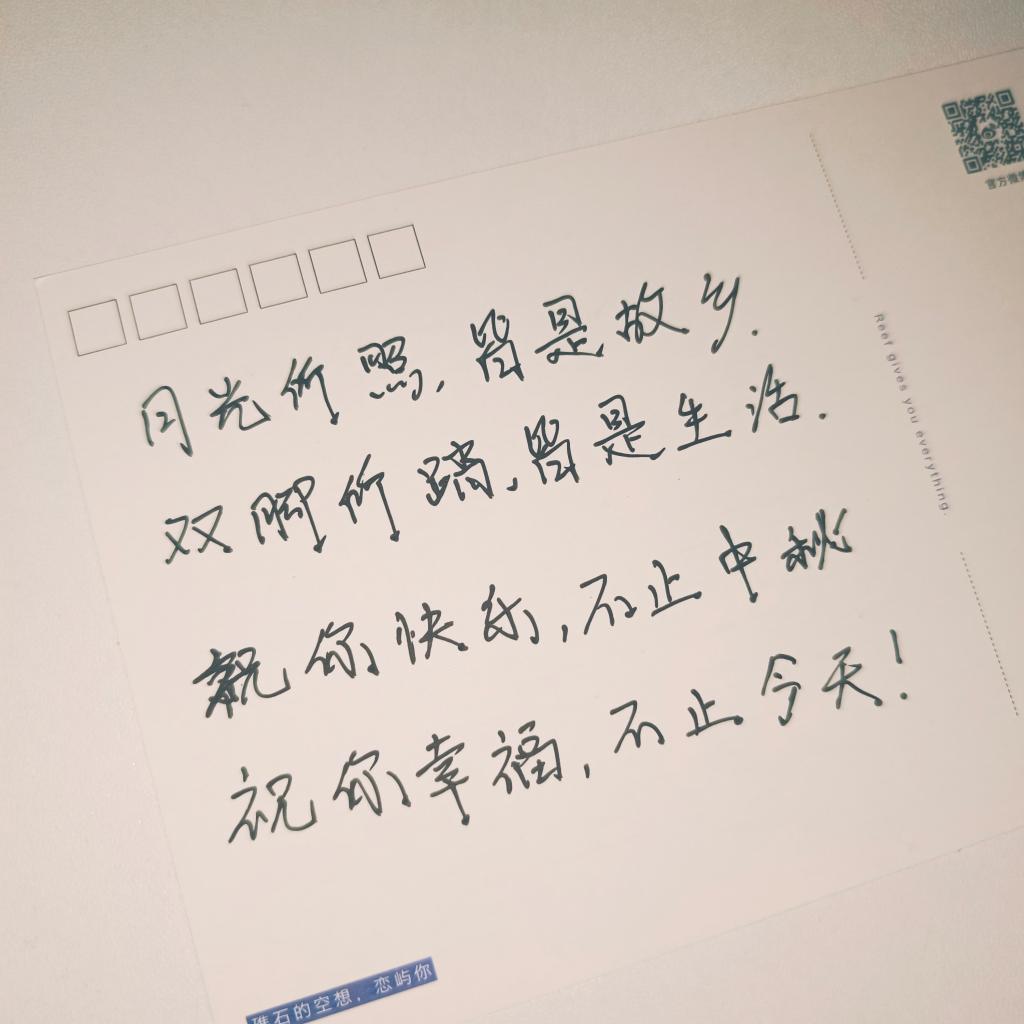 官方微博
月光所照,皆是故乡.
双脚所踏,皆是生活.
祝你快乐,不止中秋
祝你幸福,不止今天!
Reef gives you everything.
礁石的空想,恋屿你